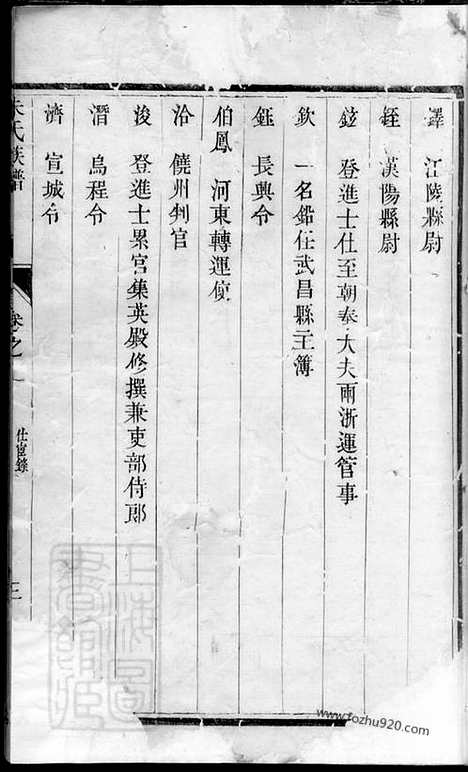 鐸 江陵縣尉
銍 漢陽縣尉
鉉 登進士仕至朝奉大夫兩浙運管事
欽 一名鉛任武昌縣主簿
鈺 長興令
伯鳳 河東轉運使
洽 饒州判官
浚 登進士累官集英殿修撰兼吏部侍郎
潛 烏程令
濟 宣城令
朱氏族譜
卷之
仕宦錄
三
上海圖書館藏
www.tozhu920.com